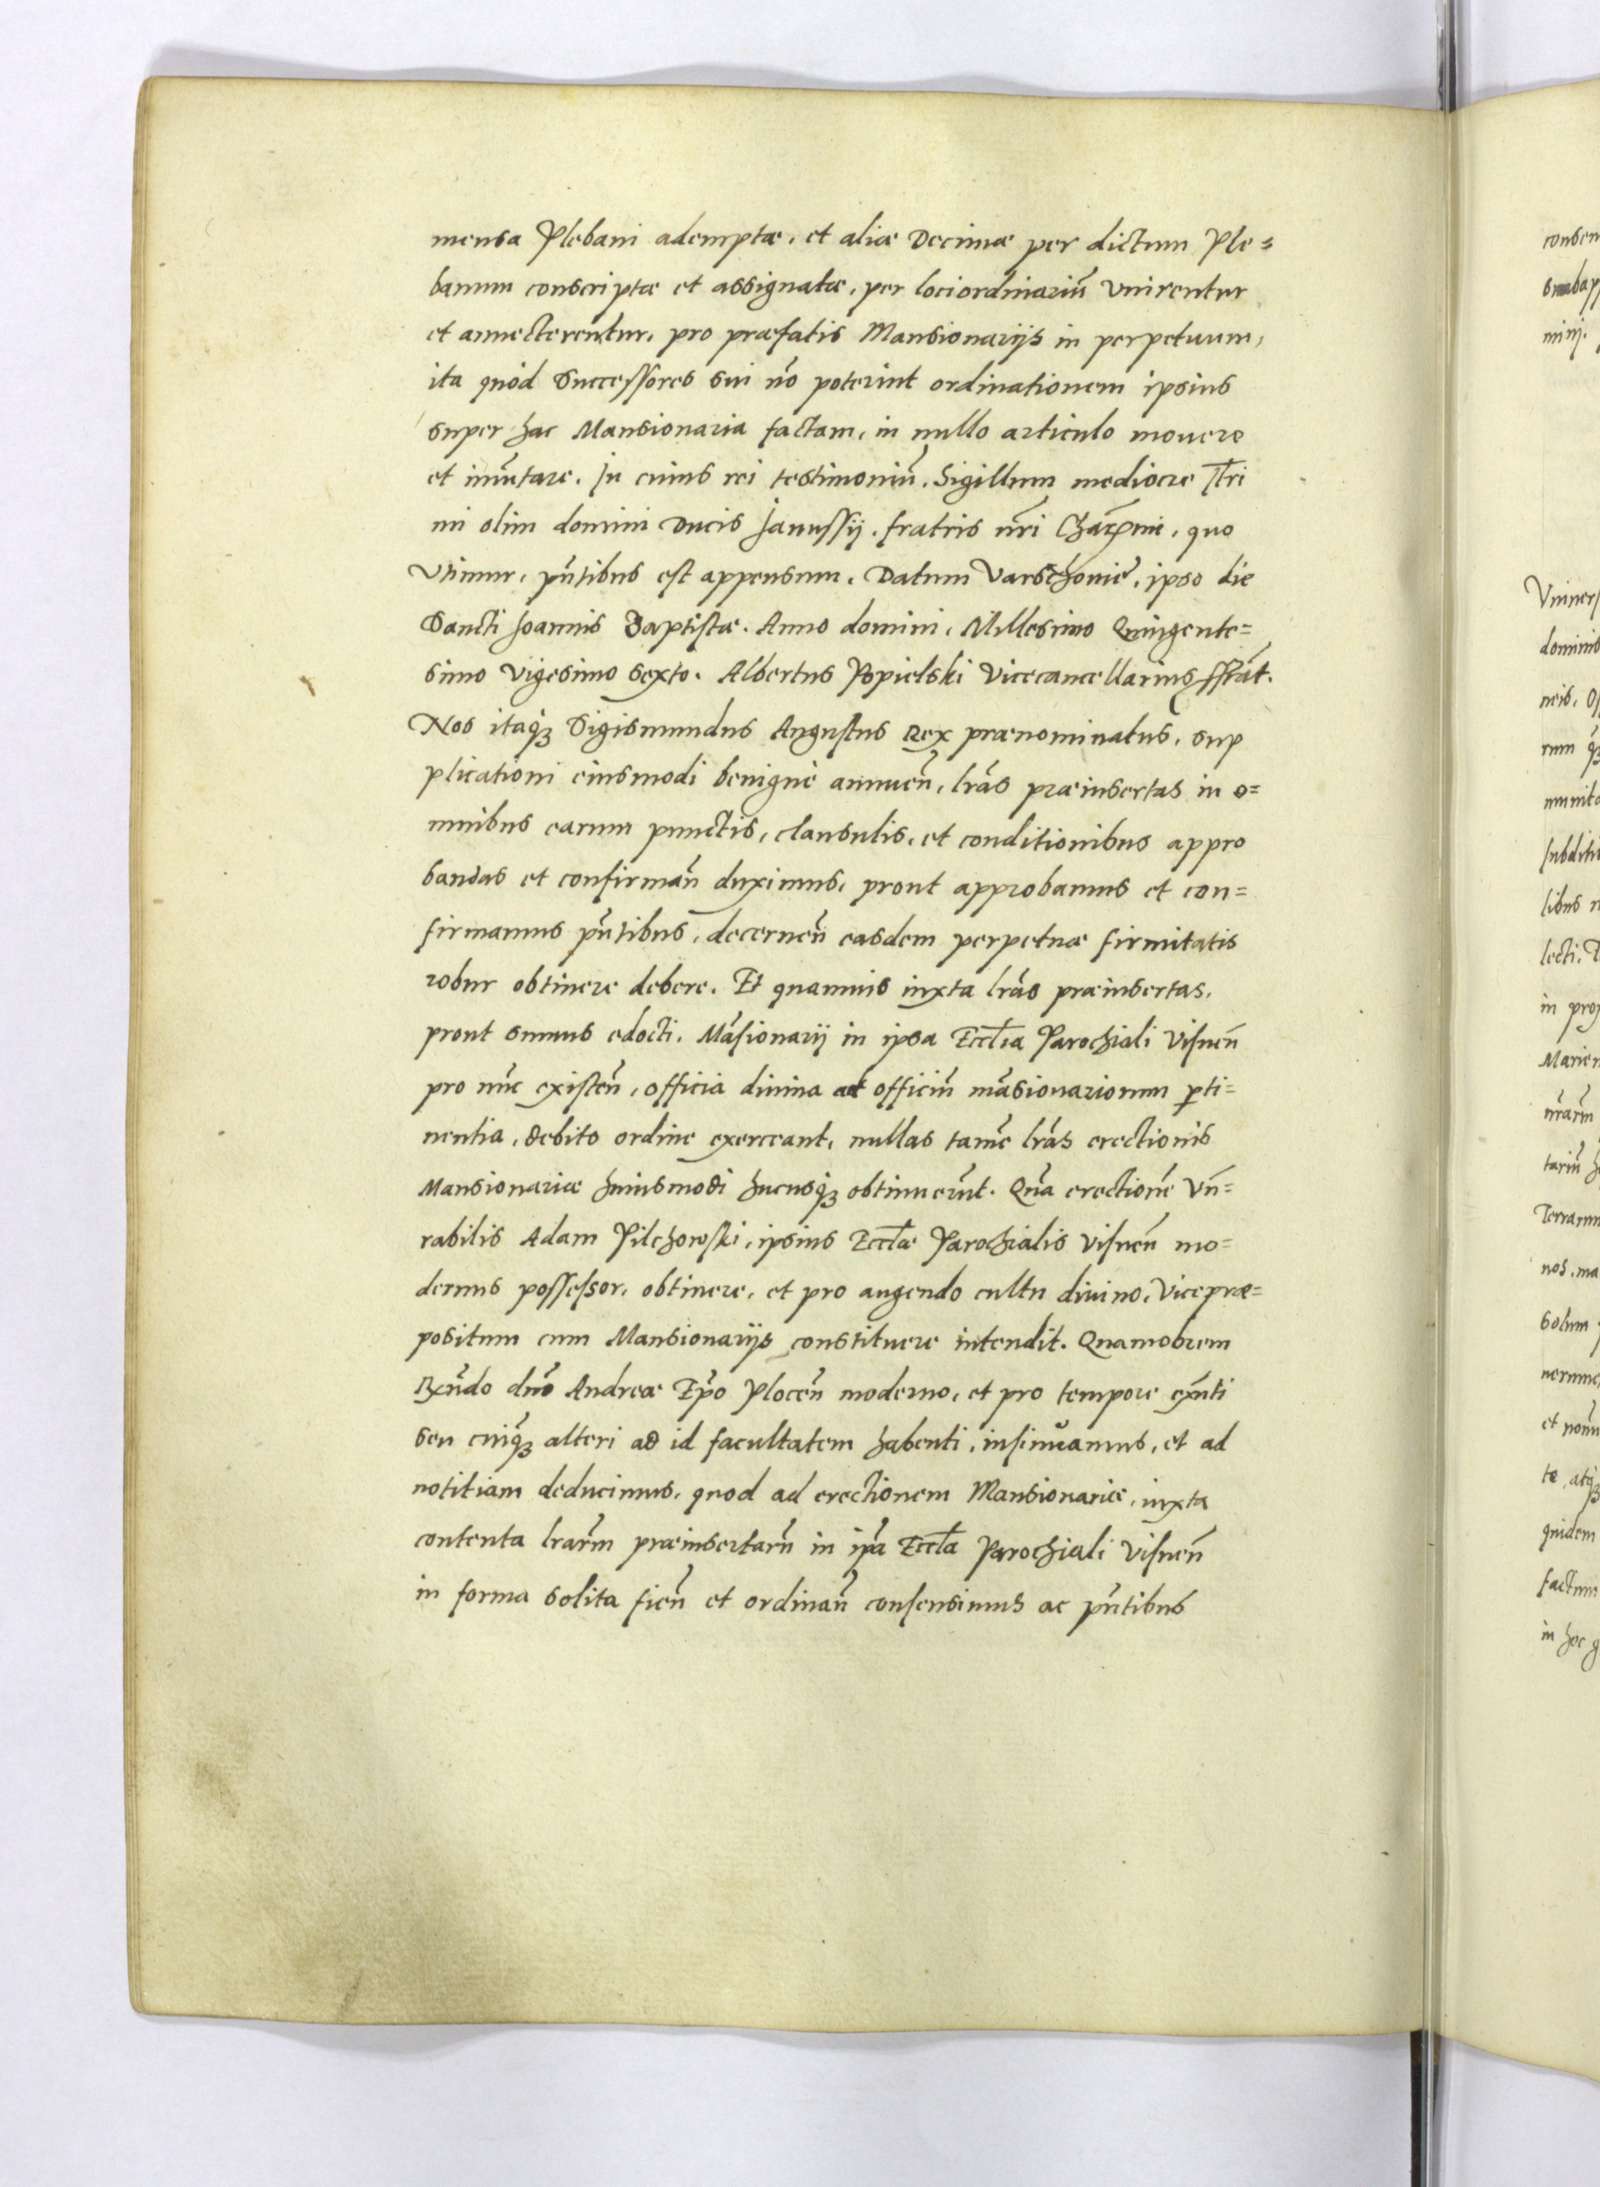 mensa Plebani ademptæ, et aliæ Decimæ per dictum Ple=
banum conscriptæ et assignatæ, per lociordinariũ Vnirentur
et annecterentur, pro præfatis Mansionarijs in perpetuum,
ita quòd Successores sui nõ poterint ordinationem ipsius
super hac Mansionaria factam, in nullo articulo mouere
et imũtare. In cuius rei testimoniũ. Sigillum mediocre Jllri
mi olim domini Ducis Janussij, fratris nr̃i Char̃mi, quo
Vtimur, pñtibus est appensum. Datum Varschouiẽ, ipso die
Sancti Joannis Baptistæ. Anno domini, Millesimo Quingente=
simo vigesimo sexto. Albertus Popielski Vicecancellarius sst.
Nos itaqꝫ Sigismundus Augustus Rex prænominatus, sup
plicationi eiusmodi benignè annuen̄, lr̃as præinsertas in o=
mnibus earum punctis, clausulis, et conditionibus appro
bandas et confirman̄ duximus, prout approbamus et con=
firmamus pñtibus, decernen̄ easdem perpetuæ firmitatis
robur obtinere debere. Et quamuis iuxta lr̃as præinsertas,
prout sumus edocti, Mãsionarij in ipsa Eccl̃ia Parochiali Visnen̄
pro nũc existen̄, officia diuina ad officiũ mãsionariorum perti=
nentia, debito ordine exerceant, nullas tamẽ lr̃as erectionis
Mansionariæ huiusmodi hucusqꝫ obtinuerũt. Quã erectionẽ Vñ=
rabilis Adam Pilchowski, ipsius Eccl̃æ Parochialis Visnen̄ mo=
dernus possessor, obtinere, et pro augendo cultu diuino, Vicepræ=
positum cum Mansionarijs constituere intendit. Quamobrem
Rñdo dnõ Andreæ Ep̃o Plocen̄ moderno, et pro tempore exñti
seu cuiqꝫ alteri ad id facultatem habenti, insinuamus, et ad
notitiam deducimus, quod ad erectionem Mansionariæ, iuxta
contenta lr̃arũm præinsertarũ in ip̃a Eccl̃a Parochiali Visnen̄
in forma solita fien̄ et ordinan̄ consensimus ac pñtibus